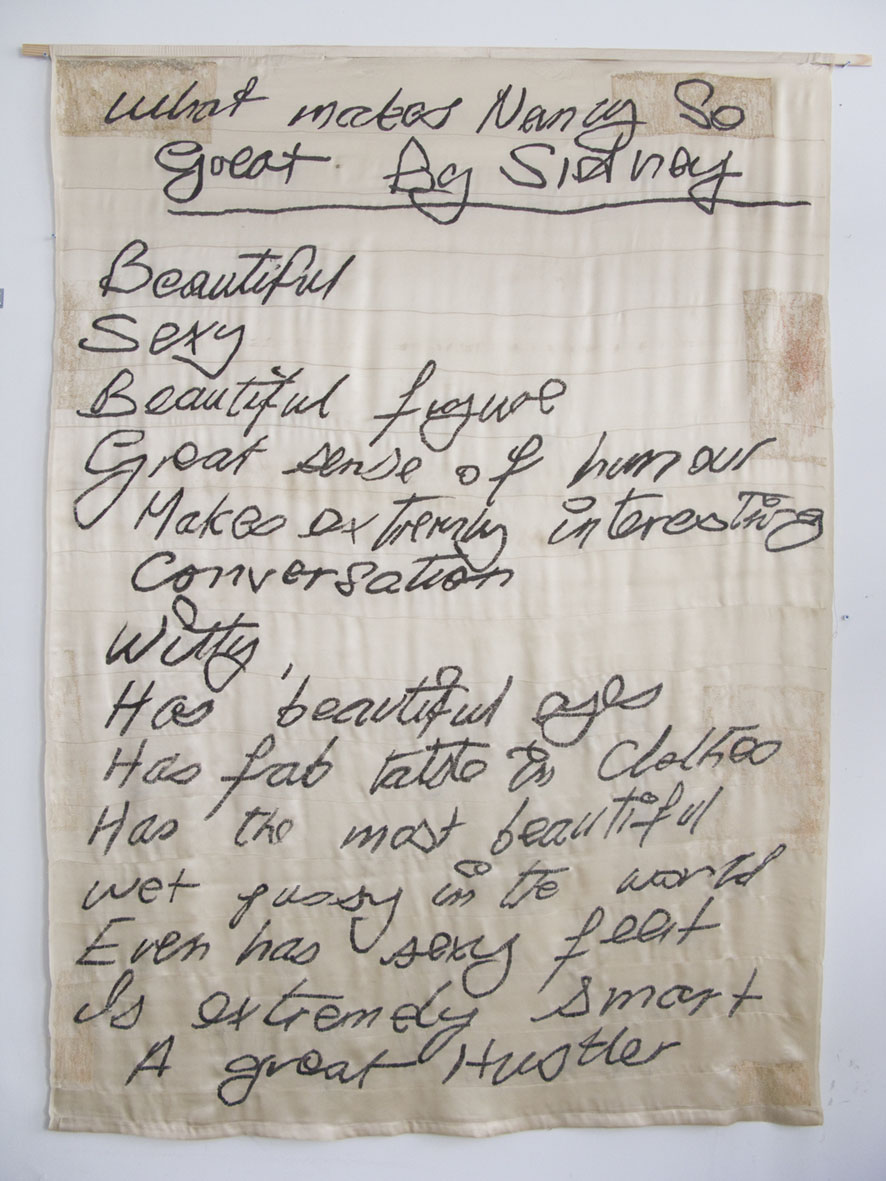 What makes Nancy So
Great By Sidney
Beautiful
Sexy
Beautiful figure
Great sense of humour
Makes extremly interesting
Conversation
Witty
Has beautiful eyes
Has fab taste in Clothes
Has the most beautiful
wet pussy in the world
Even has sexy feet
Is extremely smart
A great Hustler